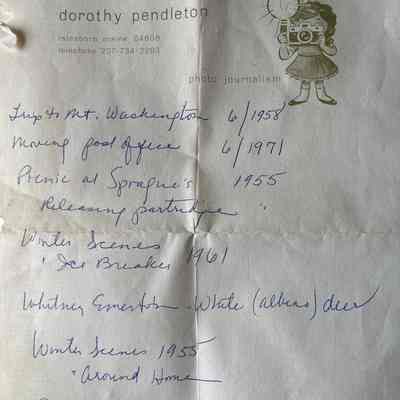 dorothy pendleton
islesboro maine 04848
telephone 207-734-2293
photo journalism
Trip to Mt. Washington 6/1958
Moving post office 6/1971
Picnic at Sprague's 1955
Releasing partridge "
Winter Scenes
" Ice Breaker 1961
Whitney Emerton - White (albino) deer
Winter Scenes 1955
" Around Home